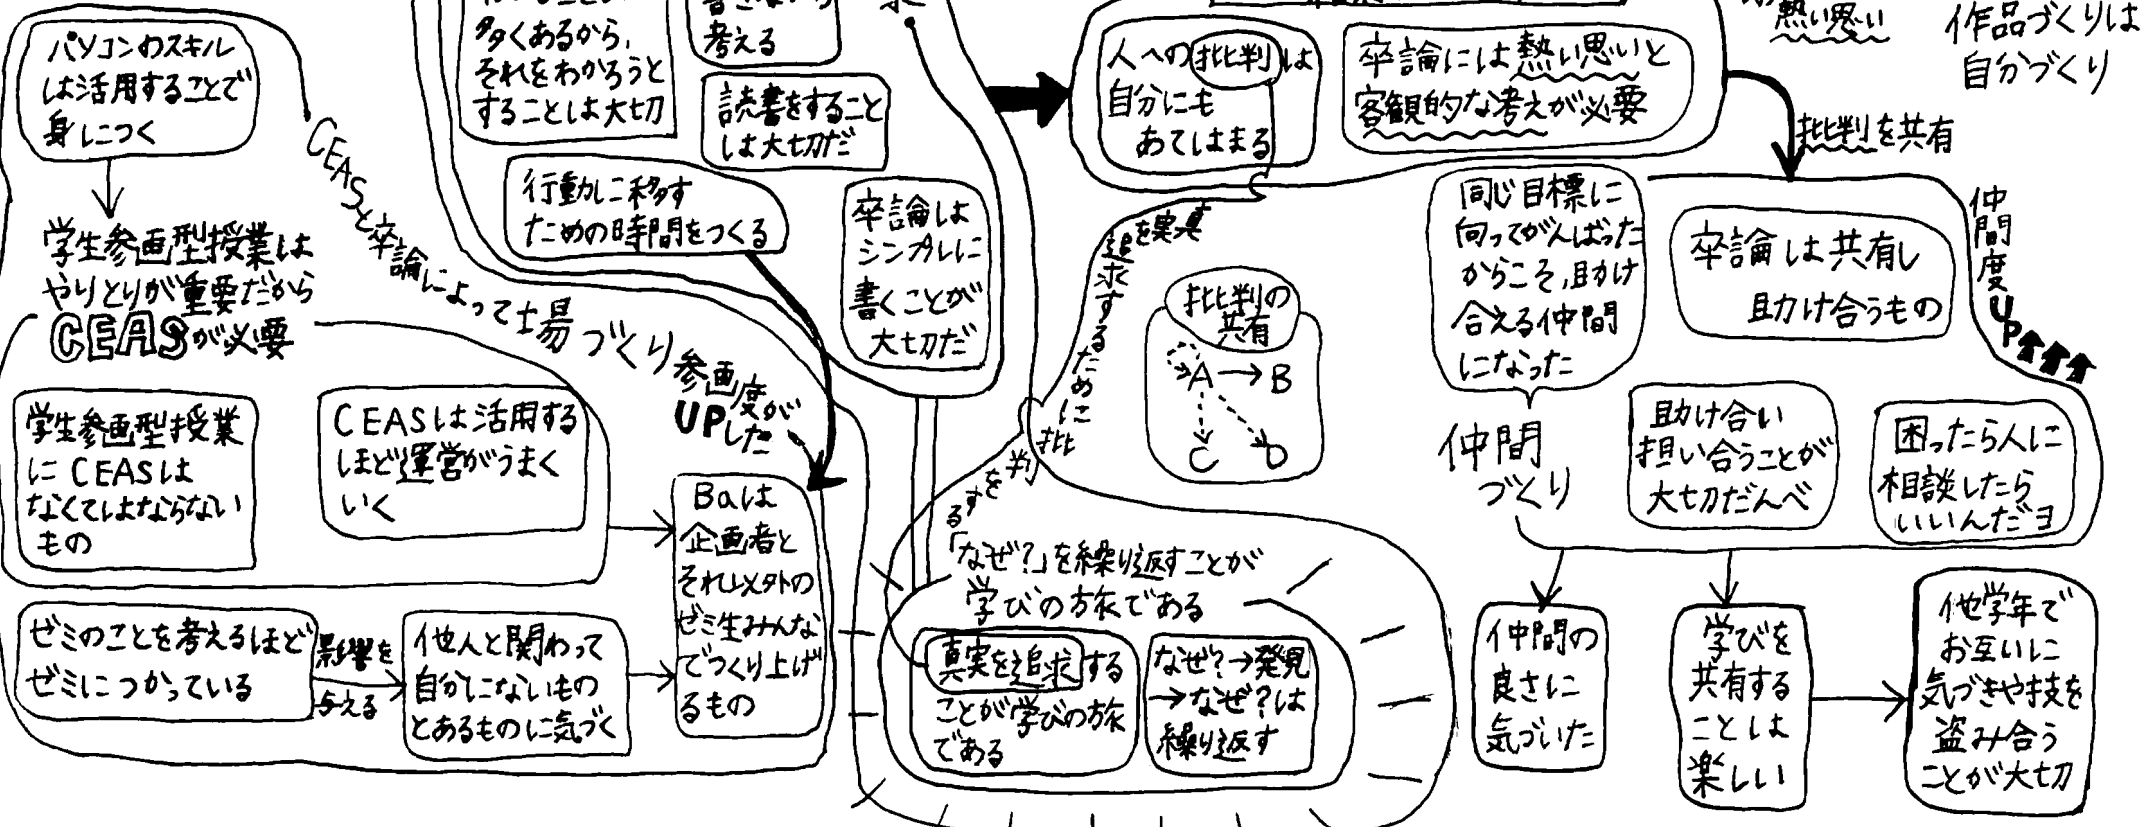 パソコンのスキル
は活用することで
身につく
学生参画型授業は
やりとりが重要だから
CEASが必要
学生参画型授業
にCEASは
なくてはならない
もの
CEASは活用する
ほど運営がうまく
いく
ゼミのことを考えるほど
ゼミにつかっている
影響を
与える
他人と関わって
自分にないもの
とあるものに気づく
CEASと卒論によって場づくり
参画度が
UPした
Baは
企画者と
それ以外の
ゼミ生みんな
でつくり上げ
るもの
多くあるから、
それをわかろうと
することは大切
考える
読書をすること
は大切だ
行動に移す
ための時間をつくる
卒論は
シンプルに
書くことが
大切だ
人への批判は
自分にも
あてはまる
卒論には熱い思いと
客観的な考えが必要
熱い思い
作品づくりは
自分づくり
批判を共有
真実を追求するために批判をする
批判の
共有
A→B
C
D
「なぜ?」を繰り返すことが
学びの旅である
真実を追求する
ことが学びの旅
である
なぜ?→発見
→なぜ?は
繰り返す
同じ目標に
向ってがんばった
からこそ、助け
合える仲間
になった
仲間
づくり
卒論は共有し
助け合うもの
仲間度UP↑↑↑
助け合い
担い合うことが
大切だんべ
困ったら人に
相談したら
いいんだヨ
仲間の
良さに
気づいた
学びを
共有する
ことは
楽しい
他学年で
お互いに
気づきや技を
盗み合う
ことが大切